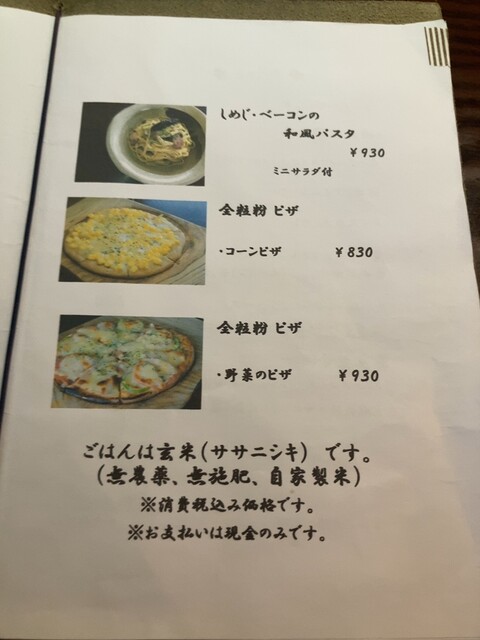 しめじ・ベーコンの
和風パスタ
¥930
ミニサラダ付
全粒粉 ピザ
・コーンピザ ¥830
全粒粉 ピザ
・野菜のピザ ¥930
ごはんは玄米(ササニシキ) です。
(無農薬、無施肥、自家製米)
※消費税込み価格です。
※お支払いは現金のみです。